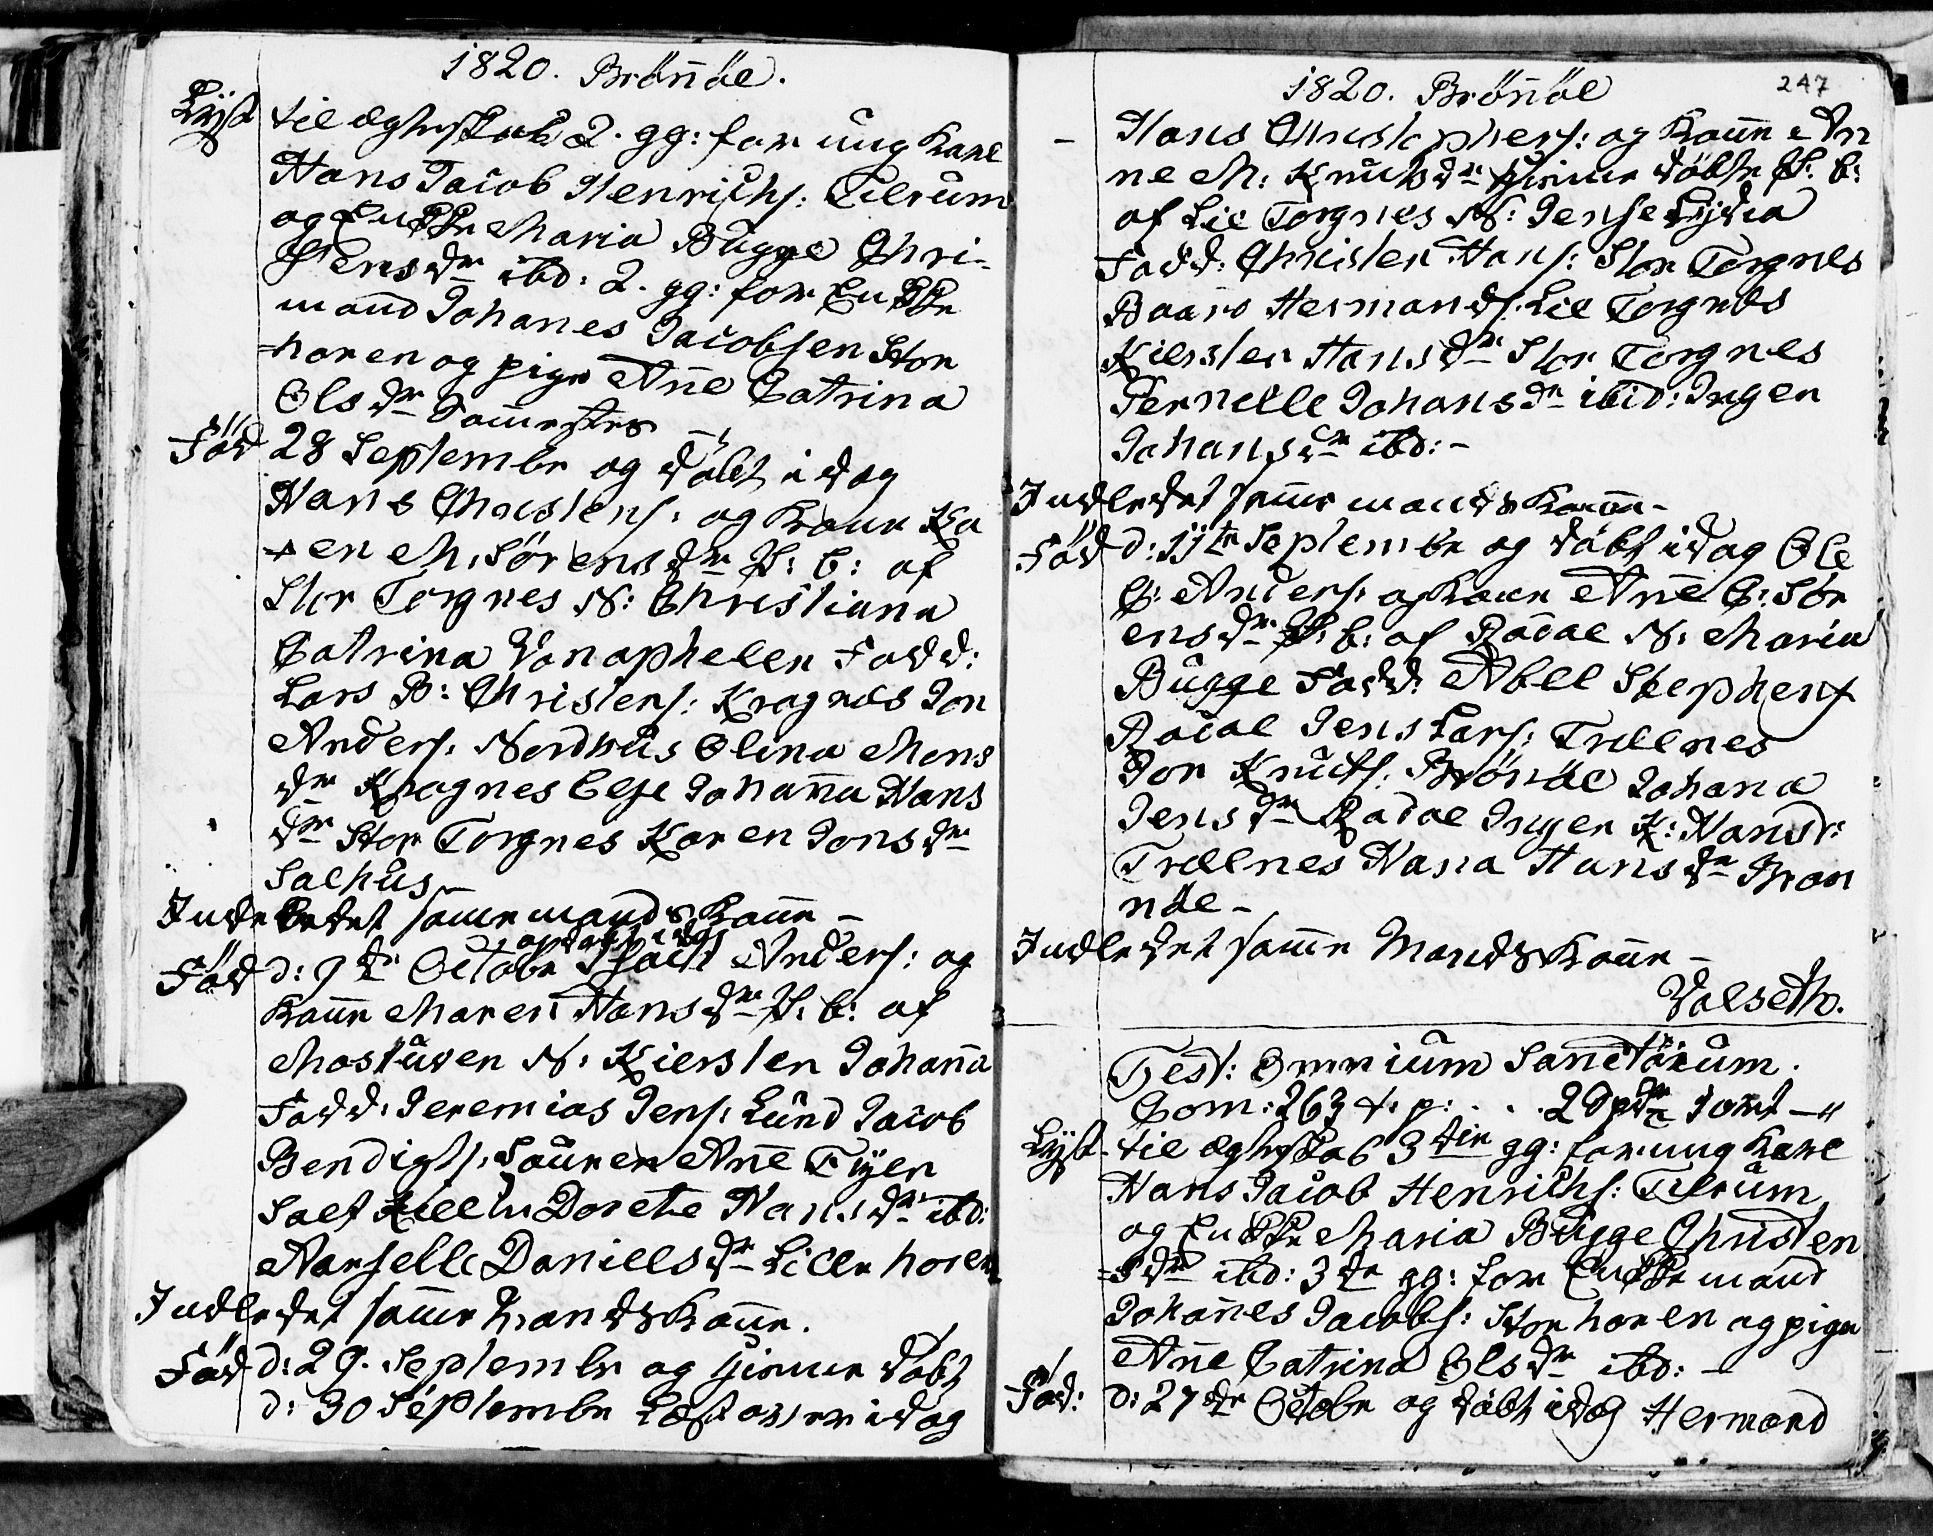 1820. Brönöe.
Lÿst til ægteskab 2. gg: for ung karl
Hans Jacob Henrichs: Tilrum
og Enkke Maria Bugge Chri-
stensdr ibd: 2. gg: for Enkke
mand Johanes Jacobsen Stor
horen og pige Añe Catrina
Olsdr Somnestes
Föd 28 Septembr og döbt i dag
Hans Christens: og kone Ka
ren M. Sörensdr Æ: b: af
Stor Torgnes N: Christiana
Catrina Vonaphelen Fadd:
Lars B: Christens: Kragnes Jon
Anders: Nordhus Olina Mons
dr Kragnes Else Johaña Hans
dr Stor Torgnes Karen Jonsdr
Salhus
Indledet same mands kone –
og döbt i dag
Föd d: 9de Octobr Anders: og
kone Maren Hansdr Æ: b: af
Mostuven N: Kiersten Johaña
Fadd: Jeremias Jens: Lund Jacob
Bendigts: Sauren Añe Tÿer
Dorete Hansdr ibd:
Danielsdr Lille horen
Indledet same mands kone.
Föd d: 29. Septembr og hjemme döbt
d: 30 Septembr Læst over i dag
1820. Brönöe
247
– Hans Christophers: og kone An
ne M: Knutsdr hjemme döbte Æ: b:
af Lie Torgnes N: Jense Lydia
Fadd: Christen Hans: Stor Torgnes
Baaro Hermands: Lie Torgnes
Kiersten Hansdr Stor Torgnes
Pernelle Johansdr ibid: Inger
Johansdr ibd: –
Indledet same mands kone –
Föd d: 11te Septembr og döbt i dag Ole
C: Anders: og kone Añe C: Sör
ensdr Æ: b: af Rödal N: Maria
Bugge Fadd: Abel Stephens
Rödal Jens Lars: Trælnes
Jon Knuts: Brönöe Johana
Jensdr Rödal Inger K: Hansdr:
Trælnes Hana Hansdr Bron
nöe –
Indledet same Mands kone –
Valseth.
Fest: Omnium Sanctorum.
Com: 263 4: p: . . . 2 Spdr 1 ort – "
Lÿst. til ægteskab 3die gg: for ung karl
Hans Jacob Henrichs: Tilrum
og Enkke Maria Bugge Christen
sdr ibd: 3de gg: for Enkke mand
Johañes Jacobs: Stor horen og pige
Añe Catrina Olsdr ibd: –
Föd: d: 27de Octobr og döbt i dag Hermand